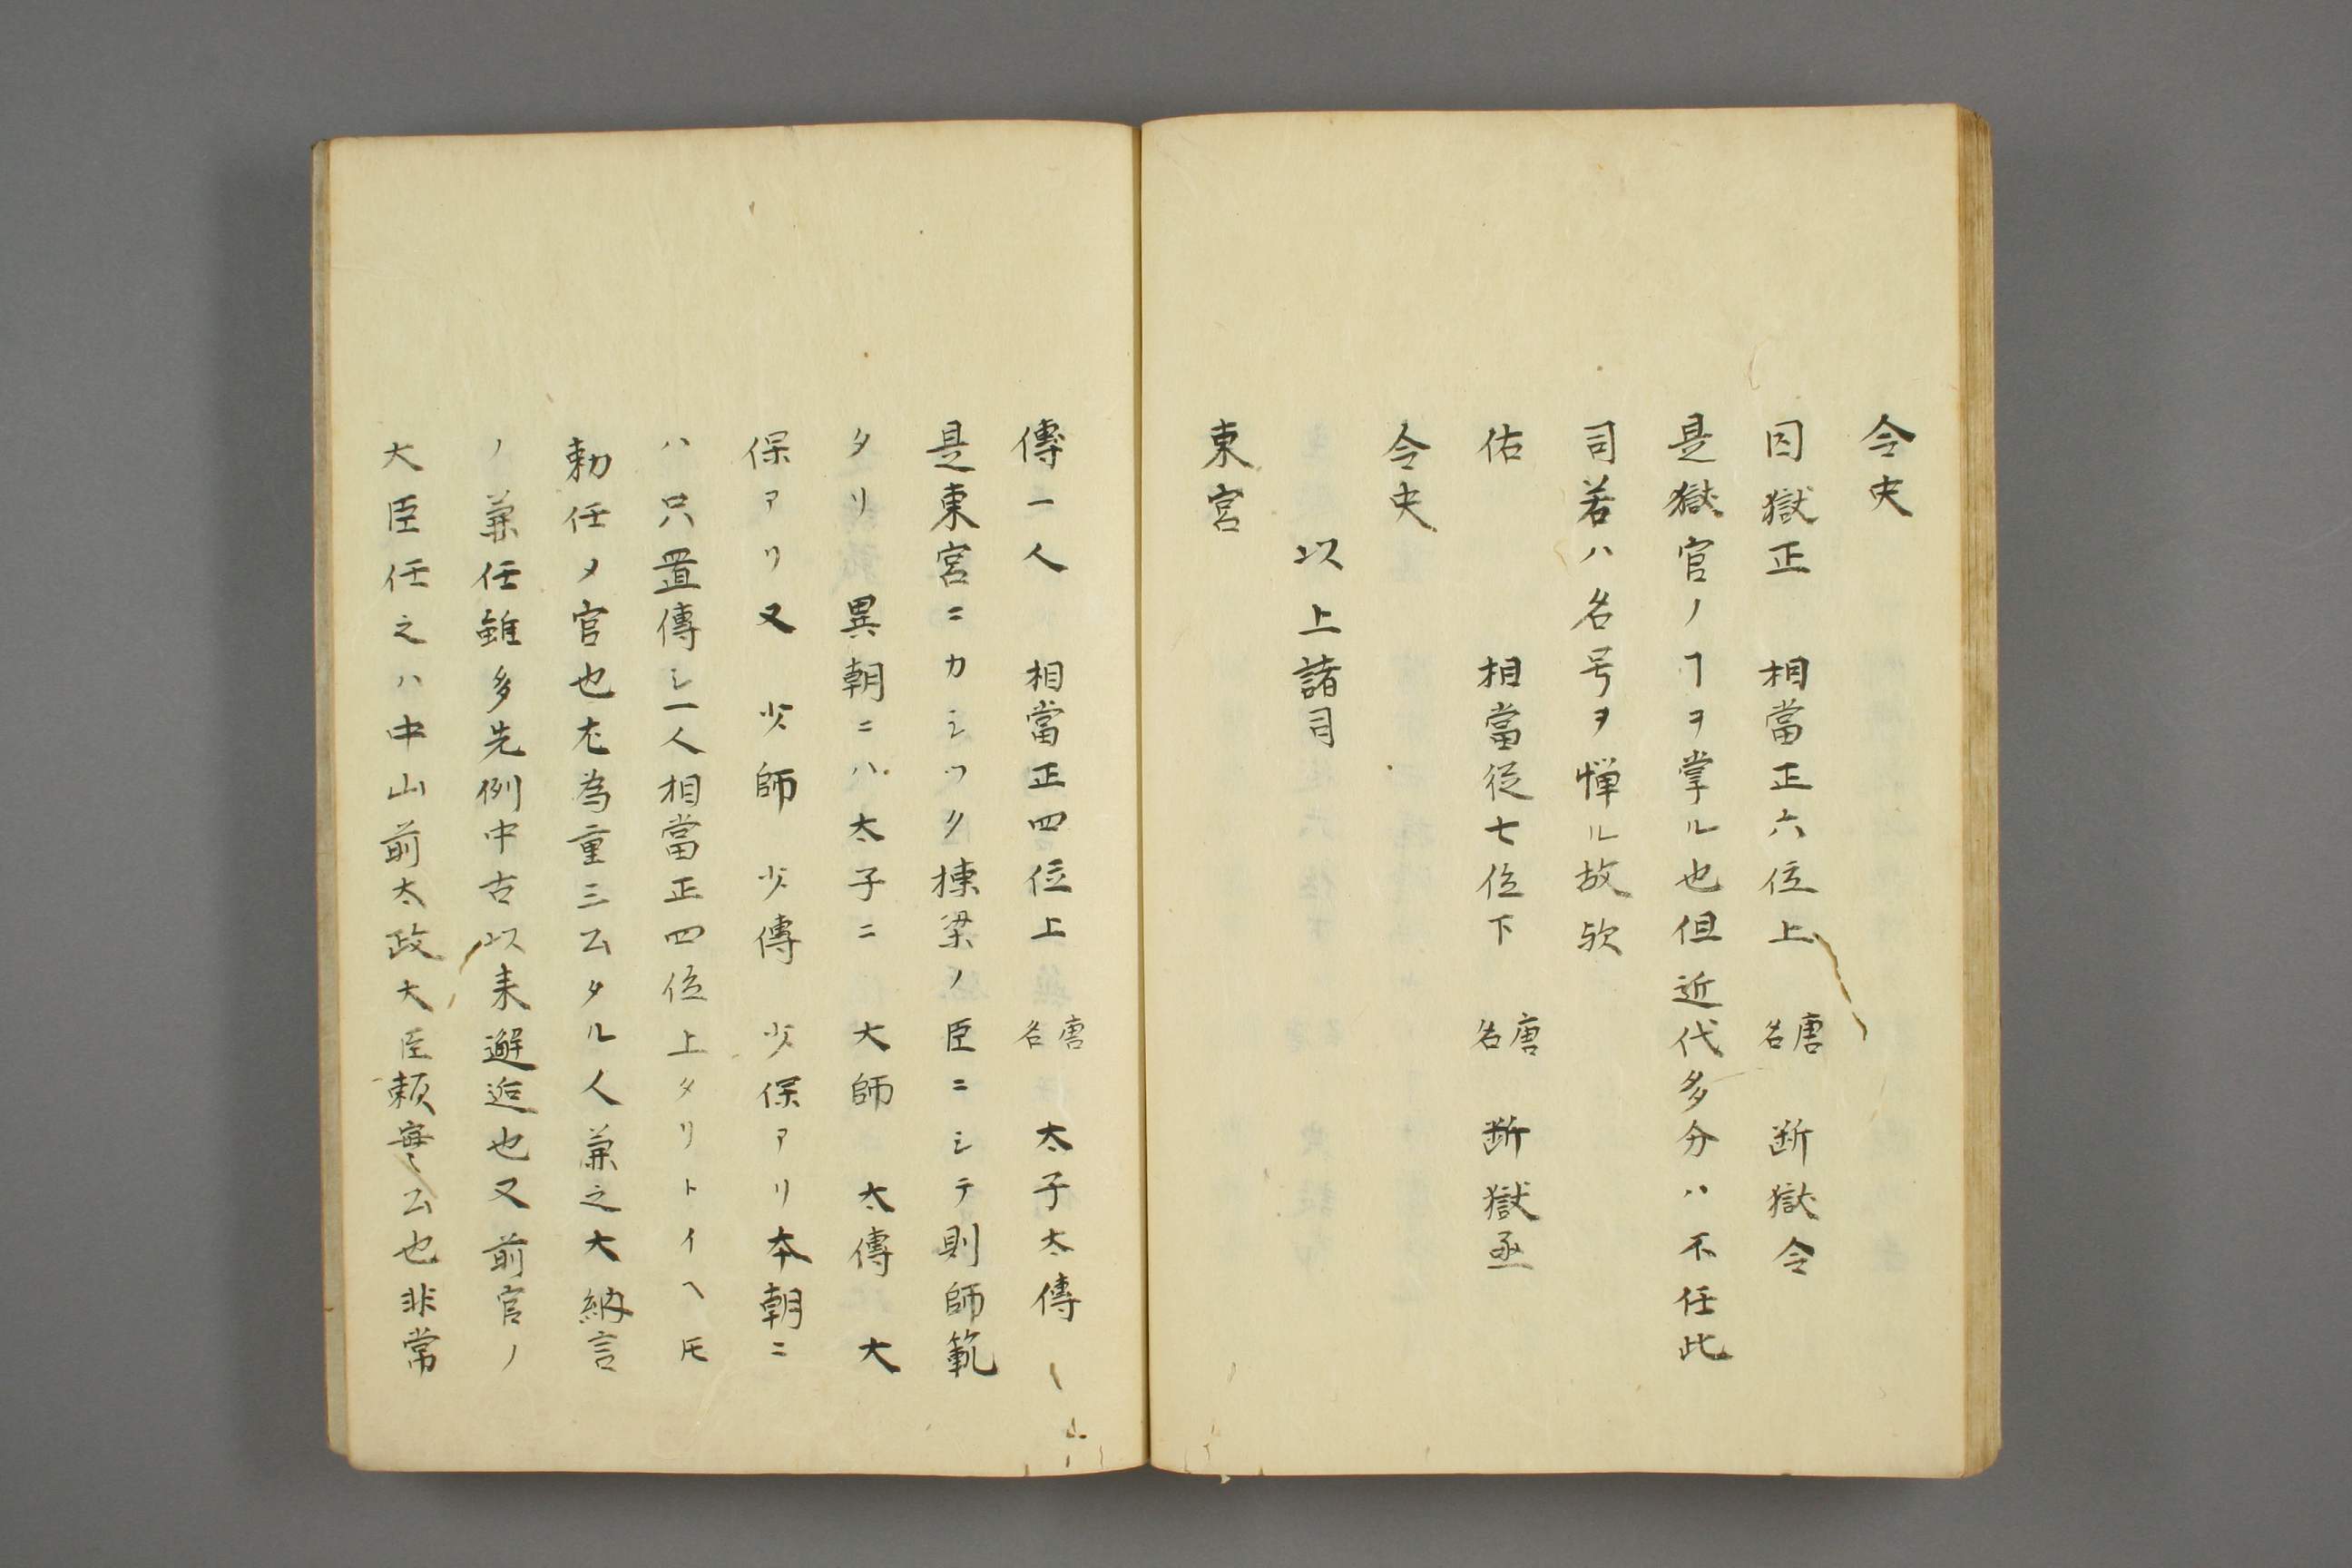 令史
囚獄正 相當正六位上 唐名 断獄令
是獄官ノヿヲ掌ル也但近代多分ハ不任此
司若ハ名号ヲ憚ル故欤
佑 相當従七位下 唐名 断獄丞
令史
以上諸司
東宮
傅一人 相當正四位上 唐名 太子太傅
是東宮ニカシツク棟梁ノ臣ニシテ則師範
タリ 異朝ニハ太子ニ 大師 太傅 大
保アリ又 少師 少傅 少保アリ本朝ニ
ハ只置傅シ一人相當正四位上タリトイヘ𪜈
勅任ノ官也尤為重三公タル人兼之大納言
ノ兼任雖多先例中古以来邂逅也又前官ノ
大臣任之ハ中山前太政大臣頼實公也非常